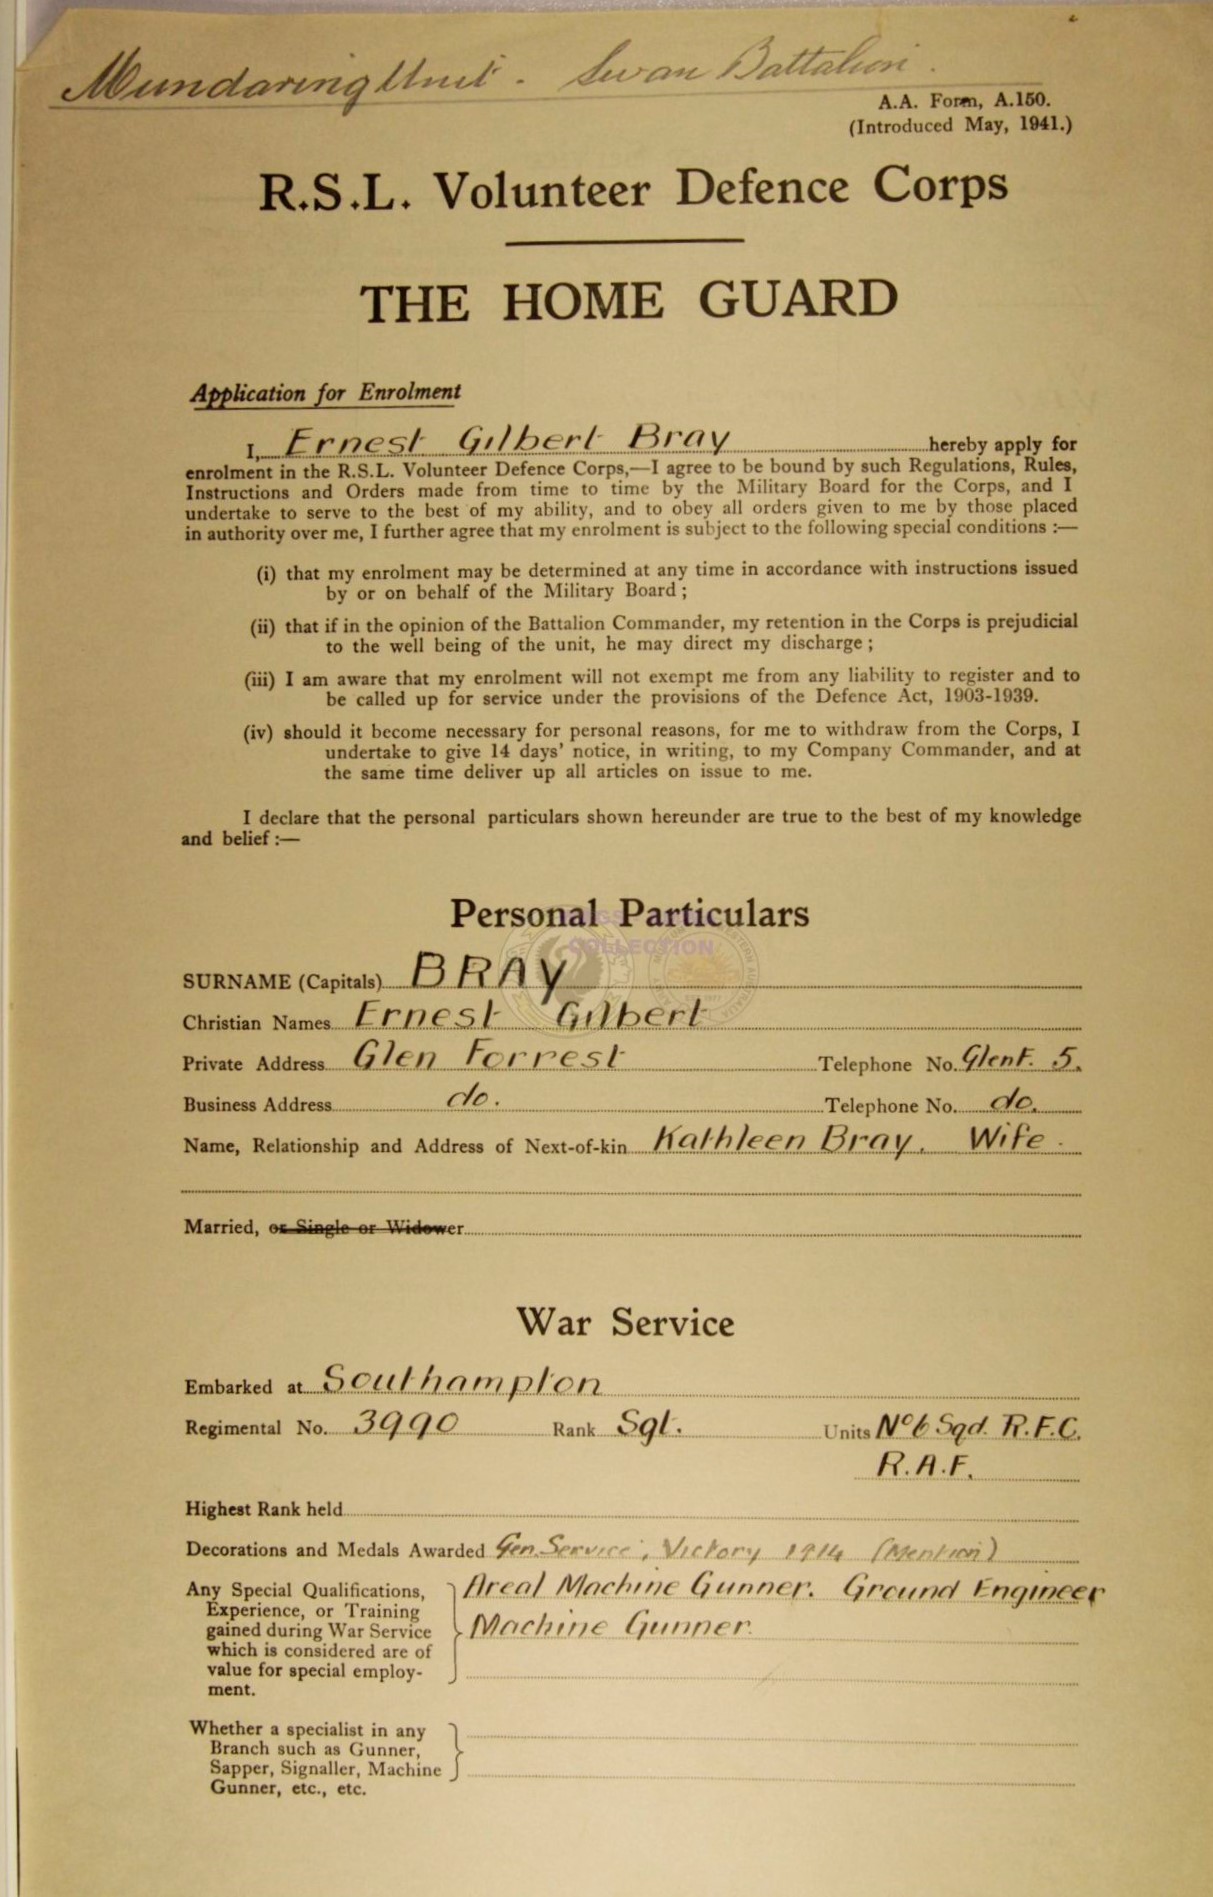 Mundaring Unit. Swan Battalion.
A.A. Form, A.150.
(Introduced May, 1941.)
R.S.L. Volunteer Defence Corps
THE HOME GUARD
Application for Enrolment
I, Ernest Gilbert Bray hereby apply for
enrolment in the R.S.L. Volunteer Defence Corps,—I agree to be bound by such Regulations, Rules,
Instructions and Orders made from time to time by the Military Board for the Corps, and I
undertake to serve to the best of my ability, and to obey all orders given to me by those placed
in authority over me, I further agree that my enrolment is subject to the following special conditions :—
(i) that my enrolment may be determined at any time in accordance with instructions issued
by or on behalf of the Military Board ;
(ii) that if in the opinion of the Battalion Commander, my retention in the Corps is prejudicial
to the well being of the unit, he may direct my discharge ;
(iii) I am aware that my enrolment will not exempt me from any liability to register and to
be called up for service under the provisions of the Defence Act, 1903-1939.
(iv) should it become necessary for personal reasons, for me to withdraw from the Corps, I
undertake to give 14 days' notice, in writing, to my Company Commander, and at
the same time deliver up all articles on issue to me.
I declare that the personal particulars shown hereunder are true to the best of my knowledge
and belief :—
Personal Particulars
COLLECTION
SURNAME (Capitals) BRAY
Christian Names Ernest Gilbert
Private Address Glen Forrest Telephone No. Glen F. 5.
Business Address do. Telephone No. do.
Name, Relationship and Address of Next-of-kin Kathleen Bray. Wife.
Married, or Single or Widower
War Service
Embarked at Southampton
Regimental No. 3990 Rank Sgt. Units No 6 Sqd. R.F.C.
R.A.F.
Highest Rank held
Decorations and Medals Awarded Gen. Service, Victory 1914 (Mention)
Any Special Qualifications, Areal Machine Gunner. Ground Engineer
Experience, or Training Machine Gunner.
gained during War Service
which is considered are of
value for special employ-
ment.
Whether a specialist in any
Branch such as Gunner,
Sapper, Signaller, Machine
Gunner, etc., etc.